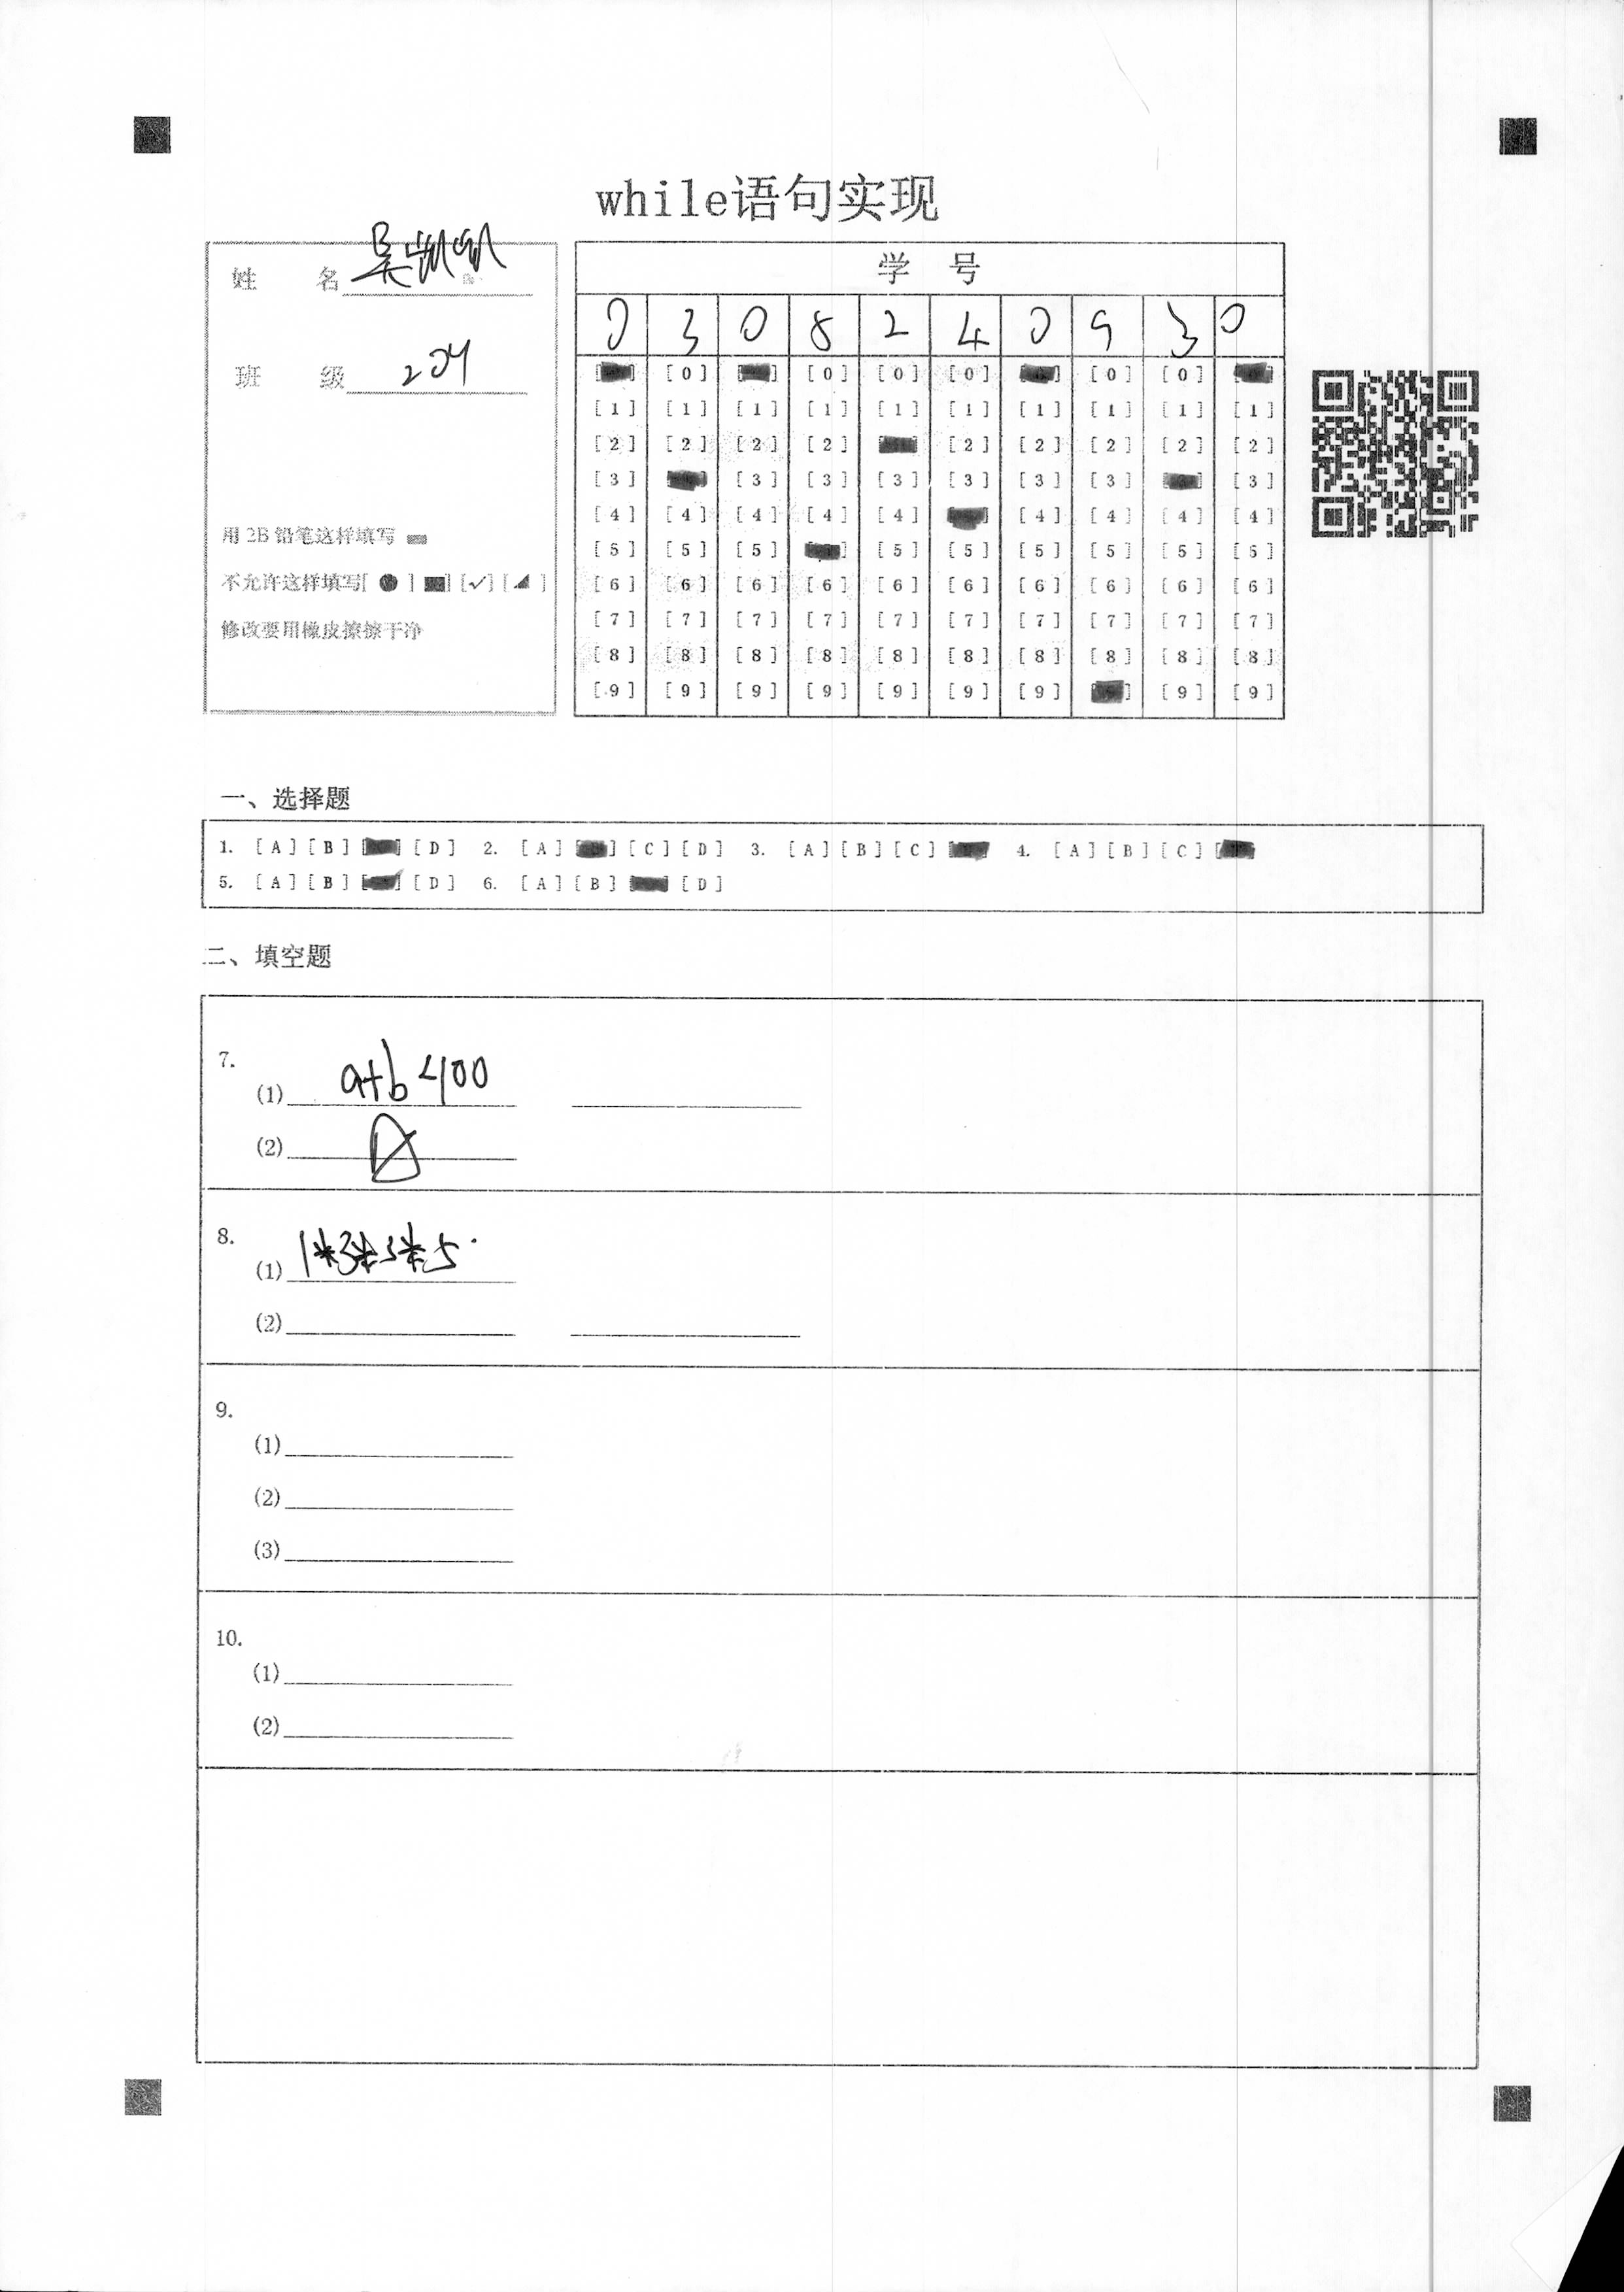 while语句实现
姓 名 吴凯凯
班 级 204
用 2B 铅笔这样填写
不允许这样填写[ ● ] [■] [✓] [◢ ]
修改要用橡皮擦擦干净
学 号
0 3 0 8 2 4 0 9 3 0
[0] [0] [0] [0] [0] [0]
[1] [1] [1] [1] [1] [1] [1] [1] [1] [1]
[2] [2] [2] [2] [2] [2] [2] [2] [2]
[3] [3] [3] [3] [3] [3] [3] [3]
[4] [4] [4] [4] [4] [4] [4] [4] [4]
[5] [5] [5] [5] [5] [5] [5] [5] [5]
[6] [6] [6] [6] [6] [6] [6] [6] [6] [6]
[7] [7] [7] [7] [7] [7] [7] [7] [7] [7]
[8] [8] [8] [8] [8] [8] [8] [8] [8] [8]
[9] [9] [9] [9] [9] [9] [9] [9] [9]
一、选择题
1. [A] [B] [D] 2. [A] [C] [D] 3. [A] [B] [C] 4. [A] [B] [C]
5. [A] [B] [D] 6. [A] [B] [D]
二、填空题
7.
(1) a+b<100
(2)
8.
(1) 1*3*3*5
(2)
9.
(1)
(2)
(3)
10.
(1)
(2)